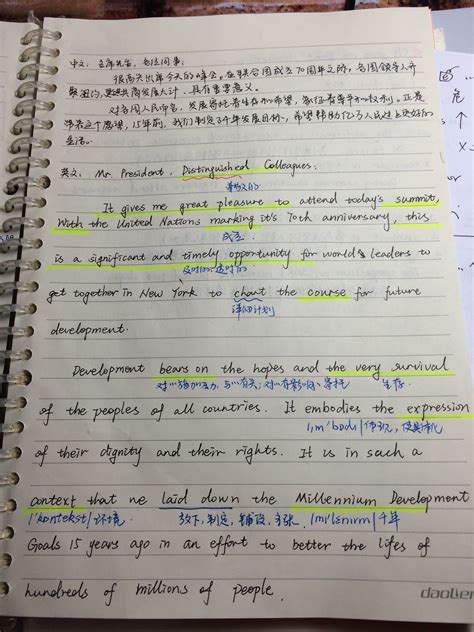 中文：主席先生，各位同事：
很高兴出席今天的峰会。在联合国成立70周年之际，各国领导人齐
聚纽约，共商发展大计，具有重要意义。
对各国人民而言，发展寄托着生存和希望，象征着尊严和权利。正是
带着这个愿望，15年前，我们制定了千年发展目标，希望帮助亿万人民过上更好的
生活。
英文：Mr. President, Distinguished Colleagues:
尊敬的
It gives me great pleasure to attend today's summit,
With the United Nations marking it's 70th anniversary, this
成立
is a significant and timely opportunity for world's leaders to
及时的、适时的
get together in New York to chart the course for future
详细计划
development.
Development bears on the hopes and the very survival
生存
of the peoples of all countries. It embodies the expression
of their dignity and their rights. It is in such a
context that we laid down the Millennium Development
/'kɒntekst/环境 放下，制定，铺设，主张 /mɪ'lenɪəm/千年
Goals 15 years ago in an effort to better the lifes of
hundreds of millions of people.
危